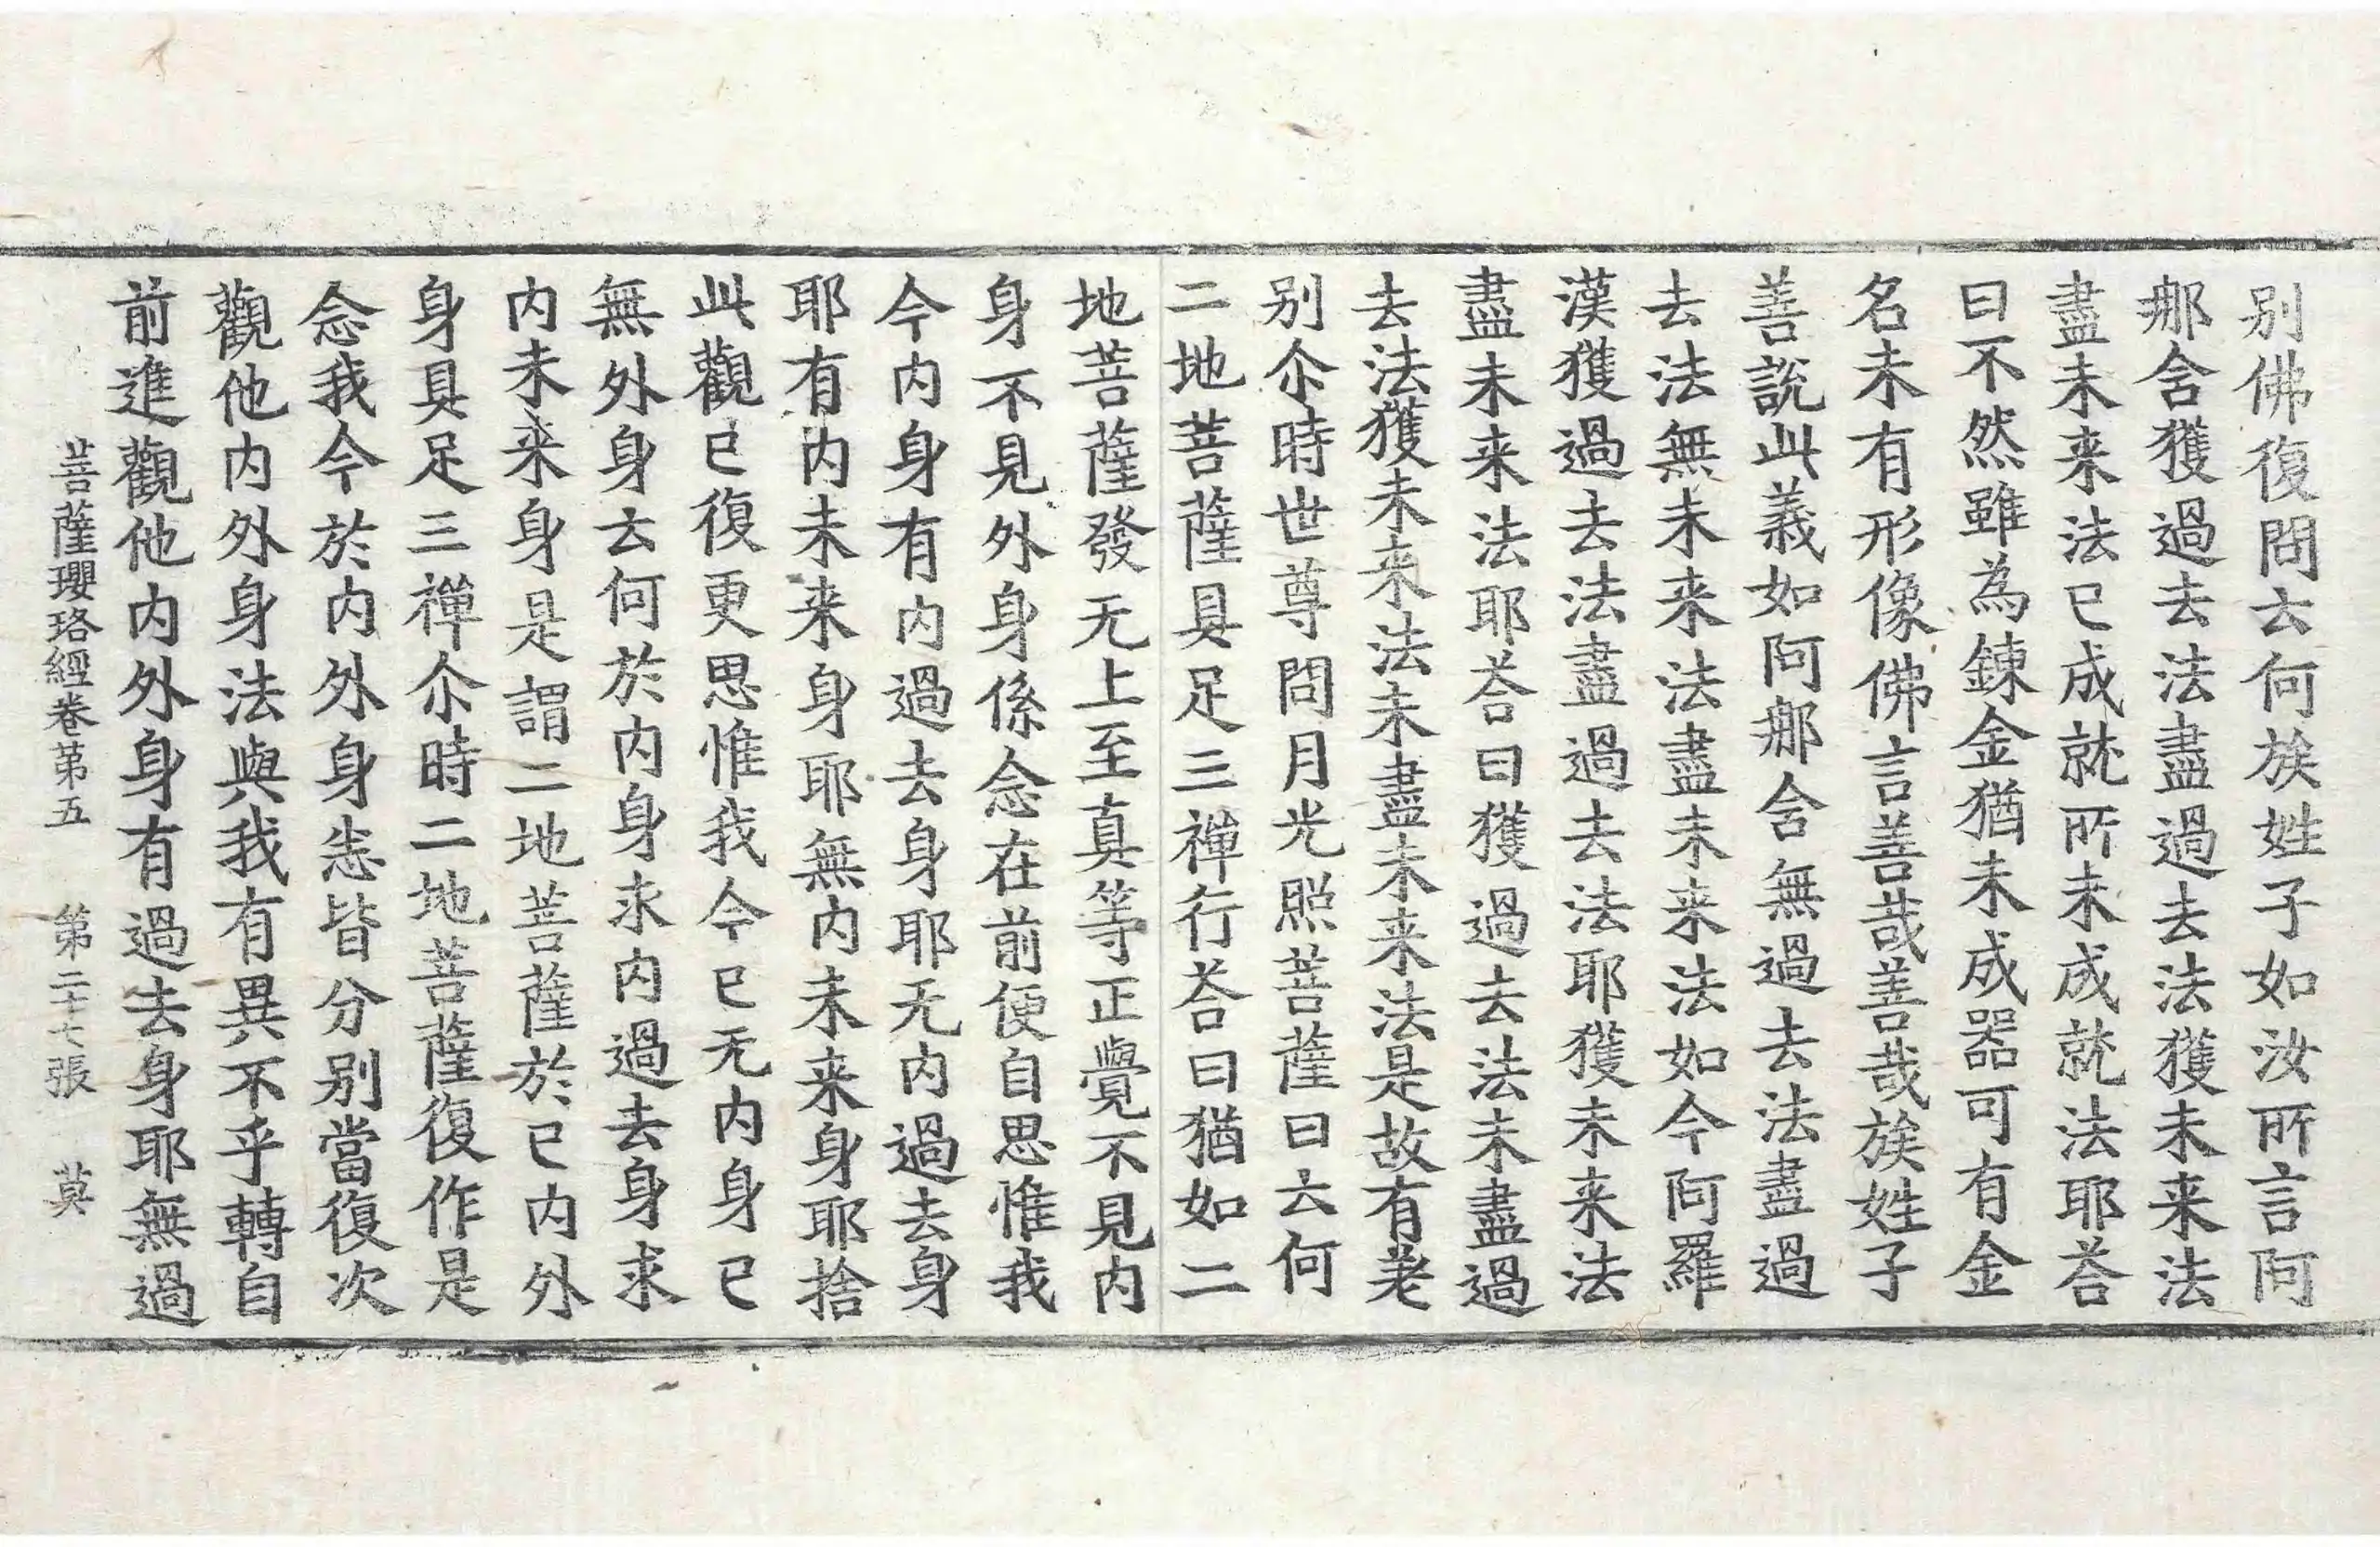 别佛復問云何族姓子如汝所言阿
那含獲過去法盡過去法獲未来法
盡未来法已成就所未成就法耶荅
曰不然雖為鍊金猶未成器可有金
名未有形像佛言善哉善哉族姓子
善說此義如阿那含無過去法盡過
去法無未来法盡未来法如今阿羅
漢獲過去法盡過去法耶獲未来法
盡未来法耶荅曰獲過去法未盡過
去法獲未来法未盡未来法是故有差
别尒時世尊問月光照菩薩曰云何
二地菩薩具足三禪行荅曰猶如二
地菩薩發无上至真等正覺不見内
身不見外身係念在前便自思惟我
今内身有内過去身耶无内過去身
耶有内未来身耶無内未来身耶捨
此觀已復更思惟我今已无内身已
無外身云何於内身求内過去身求
内未来身是謂二地菩薩於已内外
身具足三禪尒時二地菩薩復作是
念我今於内外身悉皆分别當復次
觀他内外身法與我有異不乎轉自
前進觀他内外身有過去身耶無過
菩薩瓔珞經卷苐五 第二十七張 莫